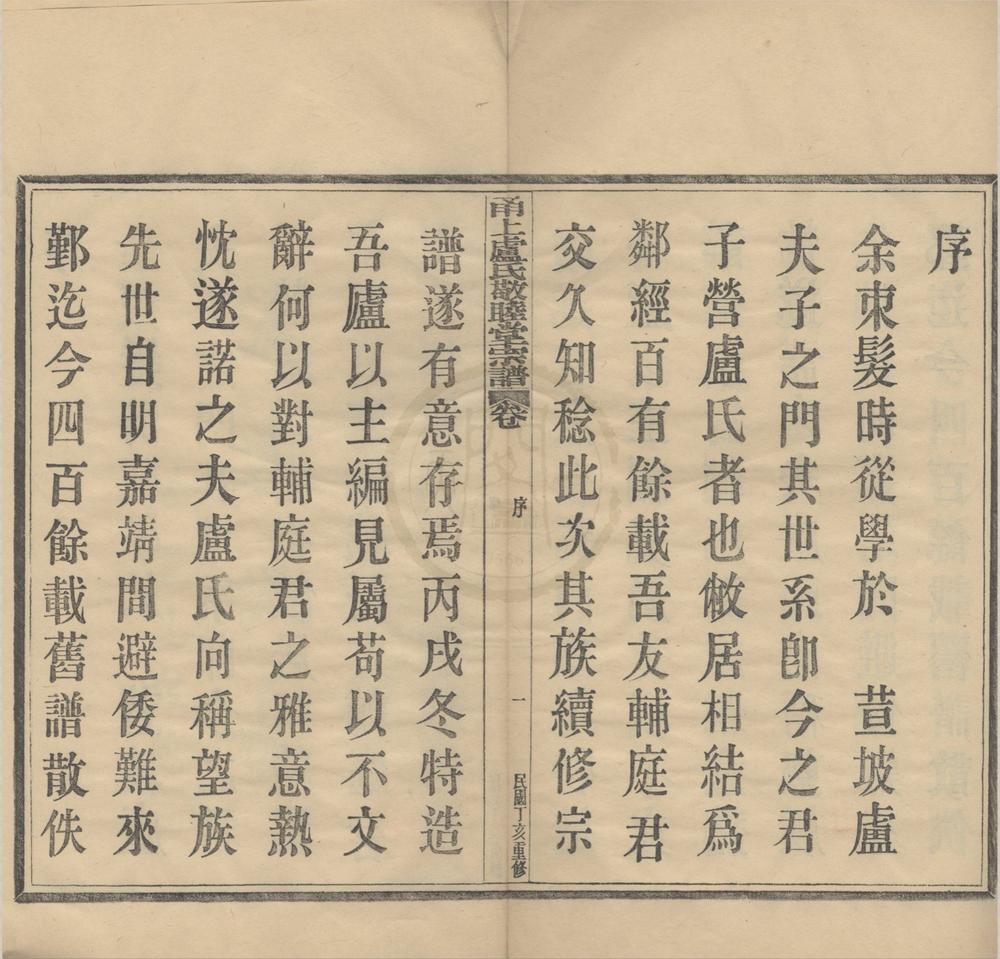 序
余束髮時從學於　荁坡盧
夫子之門其世系卽今之君
子營盧氏者也敝居相結爲
鄰經百有餘載吾友輔庭君
交久知稔此次其族續修宗
甬上盧氏敬睦堂宗譜 卷 序 一 民國丁亥重修
譜遂有意存焉丙戌冬特造
吾廬以主編見屬苟以不文
辭何以對輔庭君之雅意熱
忱遂諾之夫盧氏向稱望族
先世自明嘉靖間避倭難來
鄞迄今四百餘載舊譜散佚